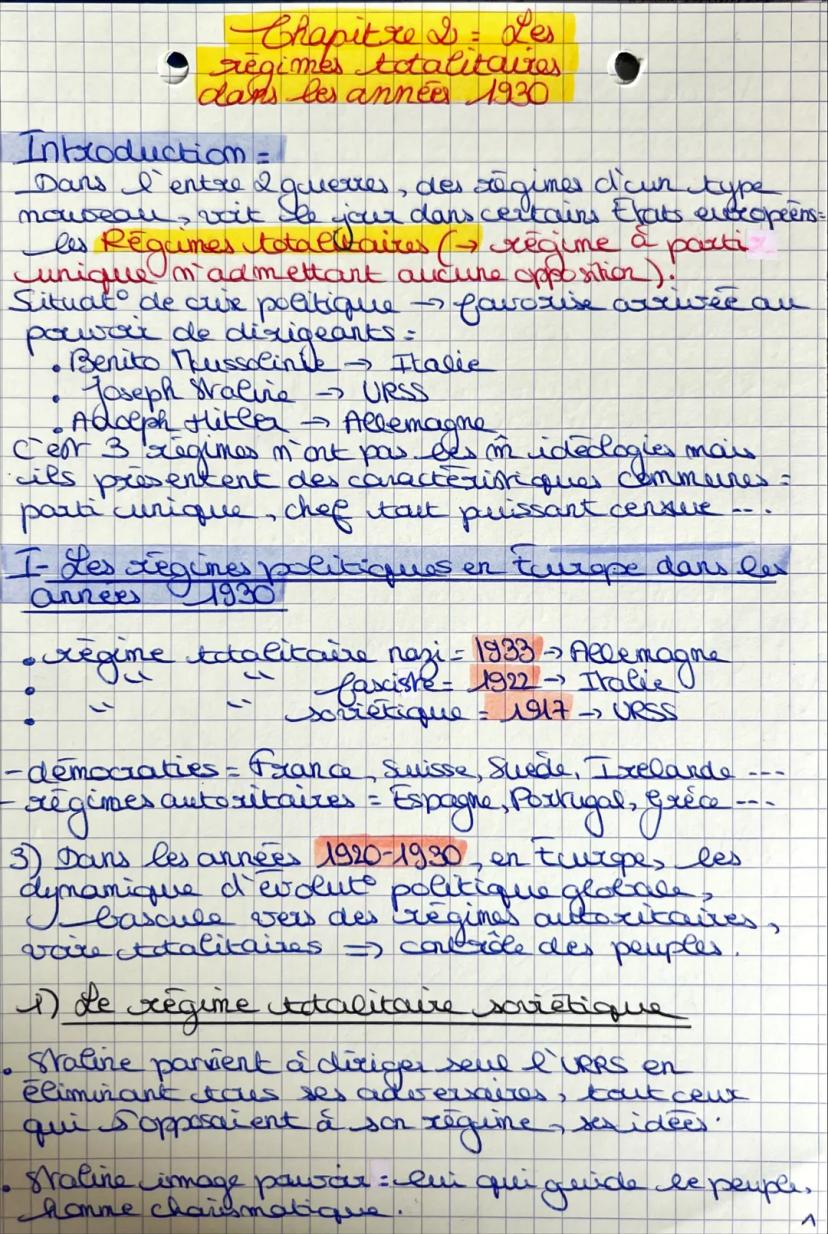 Chapitre 2 = Les
régimes totalitaires
dans les années 1930
Introduction =
Dans l'entre 2 guerres, des régimes d'un type
nouveau, voit le jour dans certains Etats européens =
les Régimes totalitaires (→ régime à parti
unique n'admettant aucune opposition).
Situat° de crise politique → favorise arrivée au
pouvoir de dirigeants =
• Benito Mussolinie → Italie
• Joseph Staline → URSS
• Adolph Hitler → Allemagne
C'est 3 régimes n'ont pas les m̂ idéologies mais
ils présentent des caractéristiques communes =
parti unique, chef tout puissant censure ...
I- Les régimes politiques en Europe dans les
années 1930
• régime totalitaire nazi = 1933 → Allemagne
• " " fasciste = 1922 → Italie
• " " soviétique = 1917 → URSS
- démocraties = France, Suisse, Suède, Irelande ---
- régimes autoritaires = Espagne, Portugal, Grèce ---
3) Dans les années 1920-1930, en Europe, les
dynamique d'évolut° politique globale,
bascule vers des régimes autoritaires,
voire totalitaires => contrôle des peuples.
1) Le régime totalitaire soviétique
• Staline parvient à diriger seul l'URRS en
éliminant tous ses adversaires, tout ceux
qui s'opposaient à son régime, ses idées.
• Staline image pouvoir = lui qui guide le peuple,
homme charismatique.
1